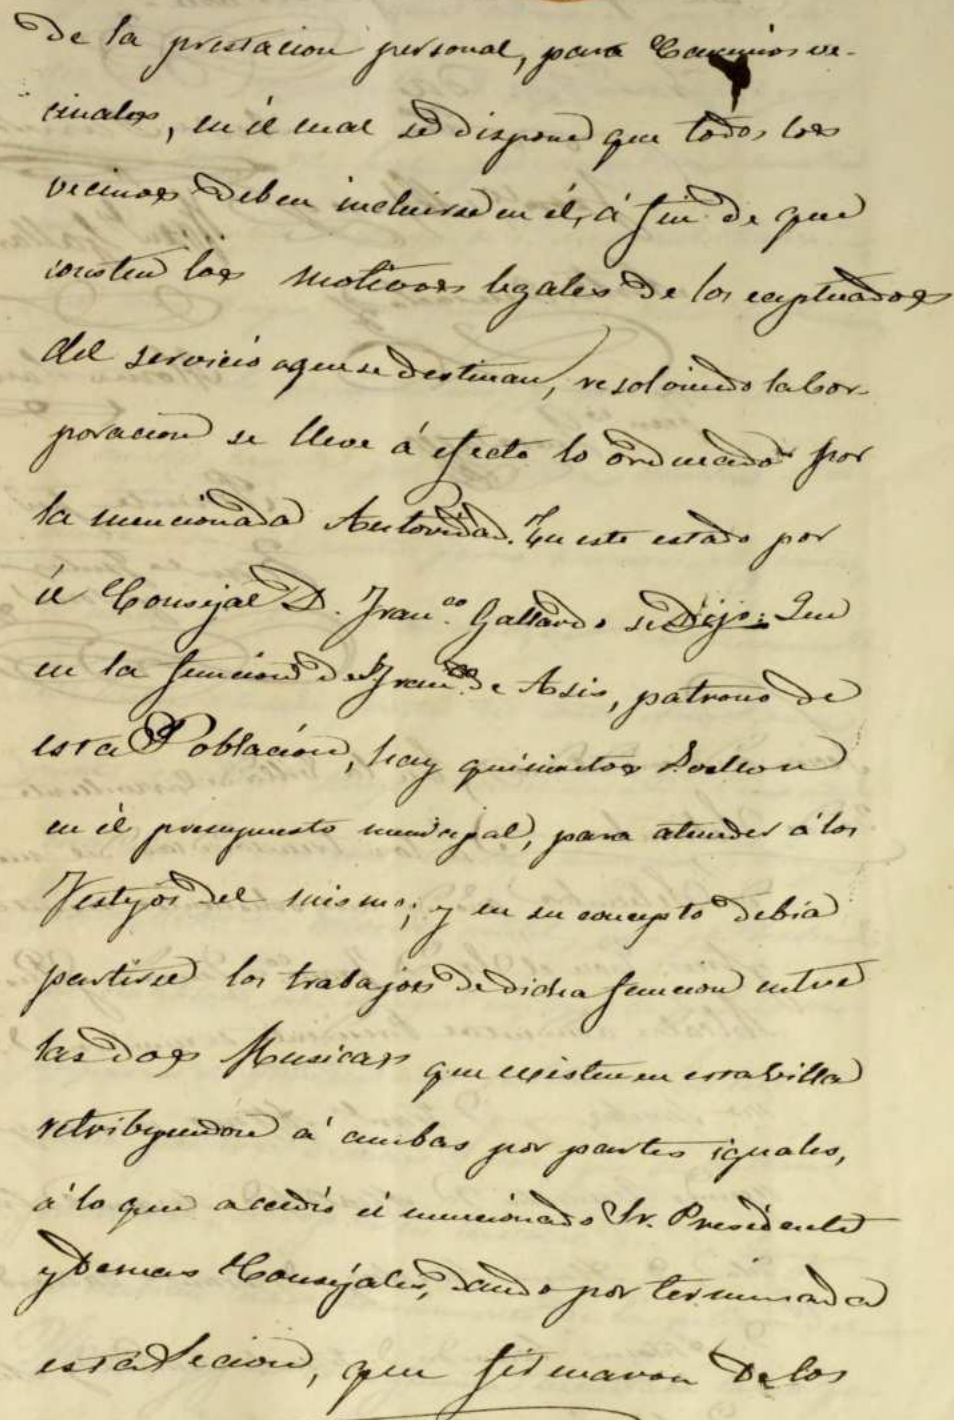 de la prestacion personal, para Caminos ve-
cinales, en él cual se dispone que todos los
vecinos deben incluirse en él, á fin de que
consten los motivos legales de los exeptuados
del servicio aque se destinan, resolviendo la Cor-
poracion se lleve á efecto lo ordenado por
la mencionada Autoridad. En este estado por
él Consejal D. Fran.co Gallardo se Dijo: Que
en la funcion de Fran.co de Asis, patrono de
esta Poblacion, hay quinientos
en él presupuesto municipal, para atender á los
Festejos del mismo; y en su concepto debia
partirse los trabajos de dicha funcion entre
las dos Musicas que existen en esta Villa
retribuyendose á ambas por partes iguales,
á lo que accedió él mencionado Sr. Presidente
y Demas Consejales, dando por terminada
esta Secion, que firmaron De los